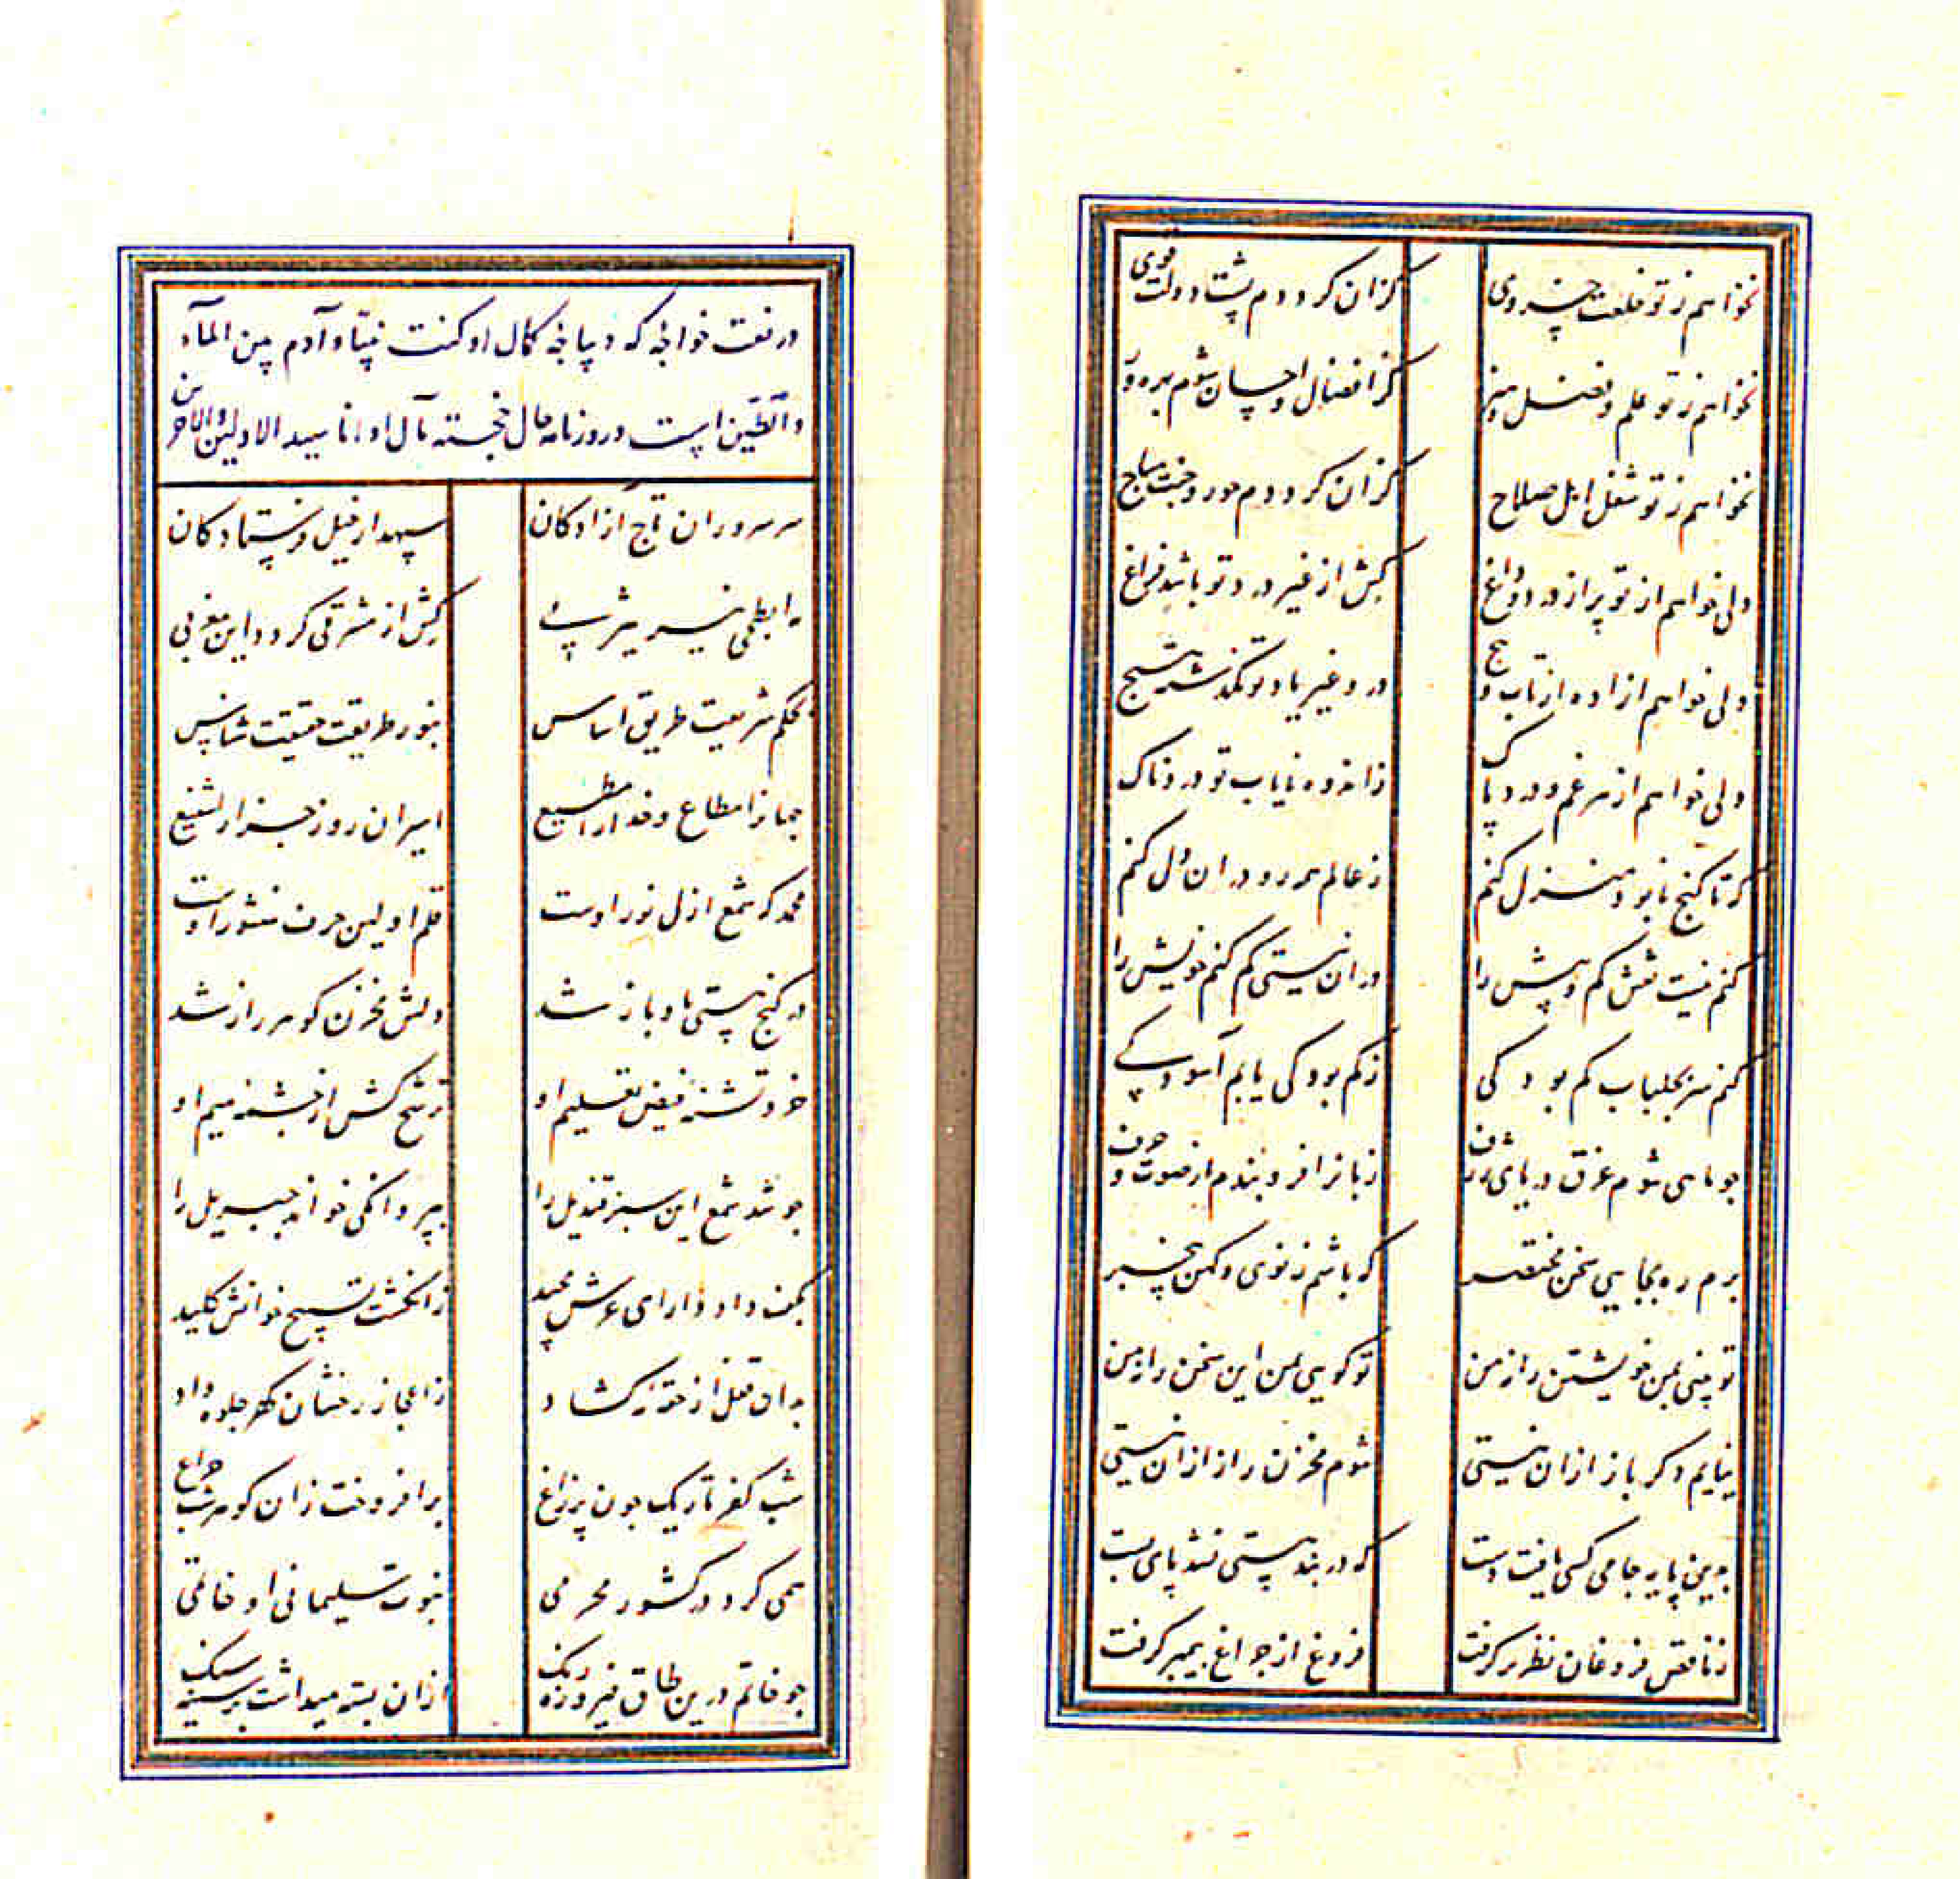 نخواهم ز تو خلعت خسروی کزان کرددم پشت دولت قوی
نخواهم ز تو علم و فضل و هنر کز افضال و احسان شوم بهره ور
نخواهم ز تو شغل اهل صلاح کزان کرددم حور و جنت مباح
دلی خواهم از تو پر از درد و داغ کش از غیر درد تو باشد فراغ
دلی خواهم ازاده از تاب و پیچ درو غیر یاد تو نگذشته هیچ
دلی خواهم از هر غم و درد پاک ز اندوه نایاب تو دردناک
کز تا کنج نابود منزل کنم ز عالم همه رو دران دل کنم
کنم نیست نقش کم و بیش را دران نیستی کم کنم خویش را
کنم سر بجلباب کم بودکی ز کم بودکی یابم آسودکی
جو ماهی شوم غرق دریای ژرف زبانرا فرو بندم از صوت و حرف
برم ره بجایی سخن مختصر که باشم ز نوی و کهن بیخبر
تو بینی بمن خویشتن را ز من تو کویی بمن این سخن را ز من
بیایم دکر باز ازان نیستی شوم مخزن راز ازان نیستی
بدین پایه جامی کسی یافت دست که در بند هستی نشد پای بست
ز ناقص فروغان نظر بر کرفت فروغ از جراغ پیمبر کرفت
در نعت خواجهٔ که دیباجهٔ کمال او کنت نبیّا و آدم بین المآء
و الطّین است و روزنامهٔ حال خجسته مآل او انا سید الاولین و الاخرین
سر سروران تاج ازادکان سپهدار خیل فرستادکان
مه ابطحی نیر یثربی کش از مشرقی کرد و این مغربی
بحکم شریعت طریق اساس بنور طریقت حقیقت شناس
جهانرا مطاع و خدا را مطیع اسیران روز جزا را شفیع
محمد که شمع ازل نور اوست قلم اولین حرف منشور اوست
در کنج هستی بدو باز شد دلش مخزن کوهر راز شد
خرد تشنهٔ فیض تعلیم او ترشح کش از جشمهٔ میم او
جو شد شمع این سبز قندیل را بپروانکی خواند جبریل را
بکف داد دارای عرش مجید ز انکشت تسبیح خوانش کلید
بدان قفل از حقه را کشاد ز اعجاز رخشان کهر جلوه داد
شب کفر تاریک جون پر زاغ برافروخت زان کوهر شب جراغ
همی کرد در کشور محرمی نبوت سلیمانی او خاتمی
جو خاتم درین طاق فیروزه رنک ازان بسته میداشت بر سینه سنک